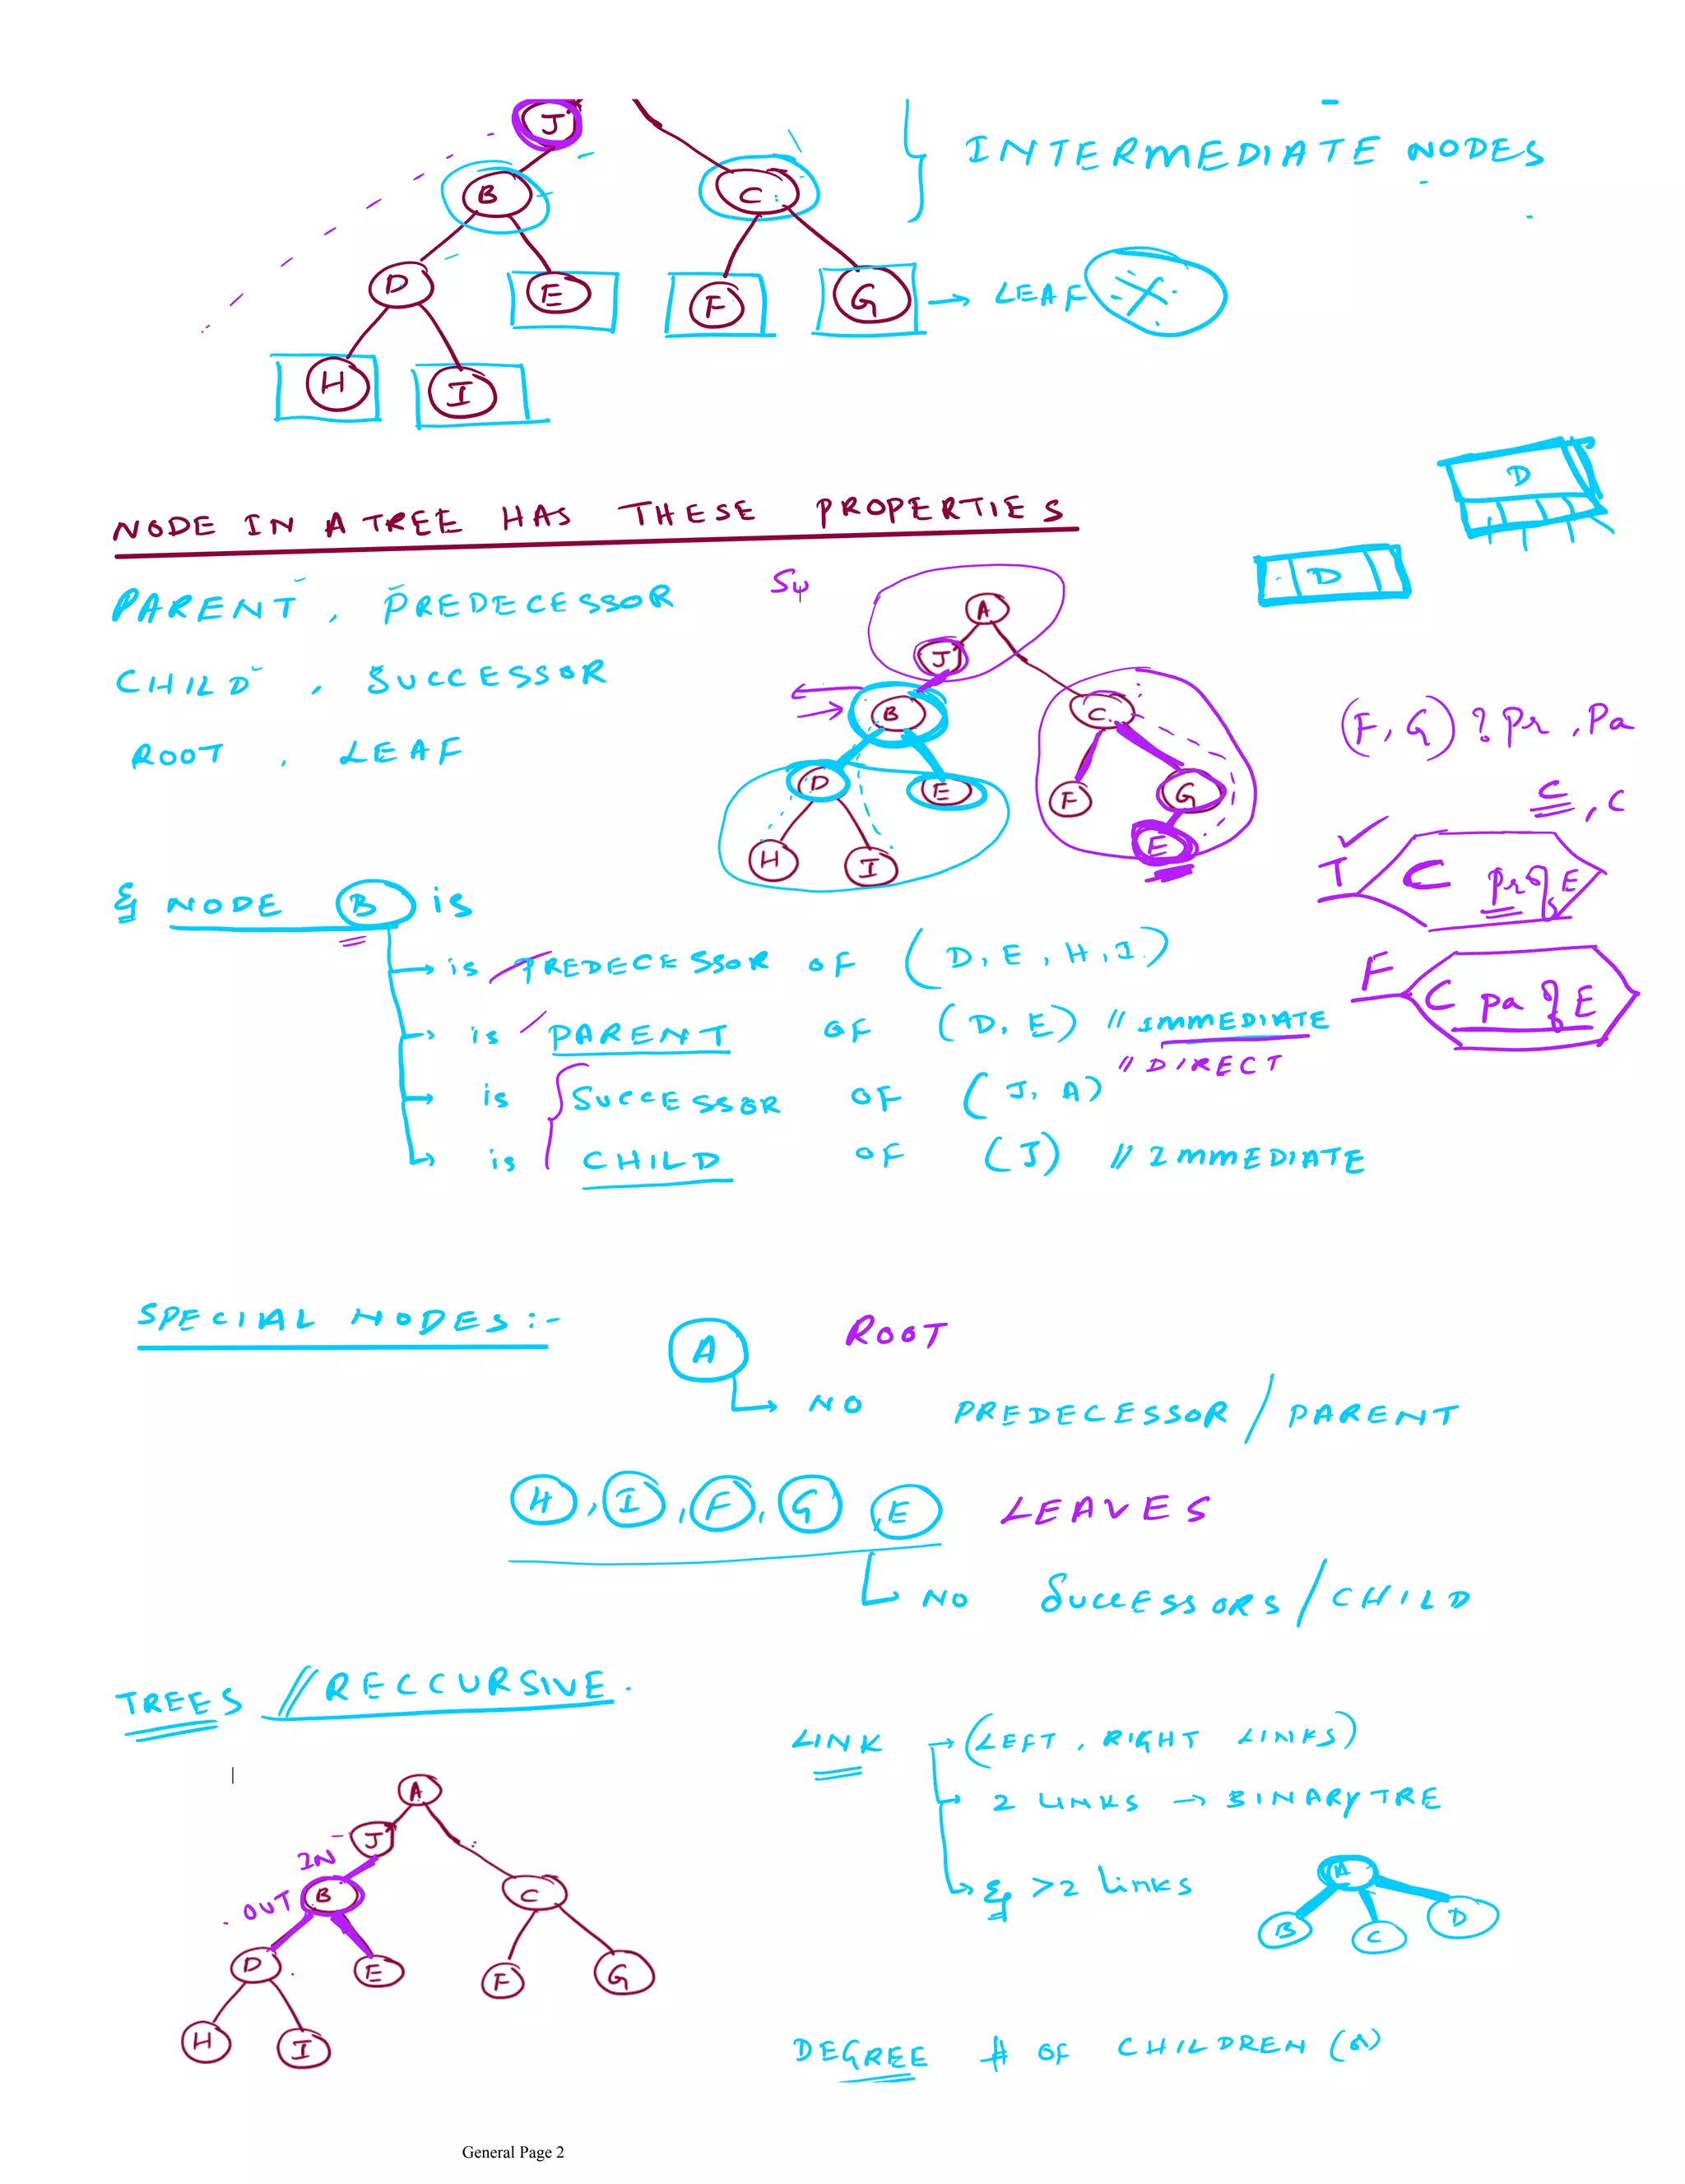 J
B C
INTERMEDIATE NODES
D E F G → LEAF
H I
D
NODE IN A TREE HAS THESE PROPERTIES
D
PARENT , PREDECESSOR
A
J
CHILD , SUCCESSOR
B C
(F, G) ? Pr , Pa
ROOT , LEAF
D E F G
C , C
H I E
T C pr of E
Eg NODE B is
→ is PREDECESSOR OF (D, E, H, I)
F C pa of E
→ is PARENT OF (D, E) // IMMEDIATE
// DIRECT
→ is SUCCESSOR OF (J, A)
→ is CHILD OF (J) // IMMEDIATE
SPECIAL NODES :-
A ROOT
→ NO PREDECESSOR / PARENT
H , I , F , G , E LEAVES
→ NO SUCCESSORS / CHILD
TREES // RECCURSIVE .
LINK → (LEFT , RIGHT LINKS)
→ 2 LINKS → BINARY TRE
→ Eg >2 links
A
B C D
A
J
IN
OUT B C
D E F G
H I
DEGREE # OF CHILDREN
General Page 2